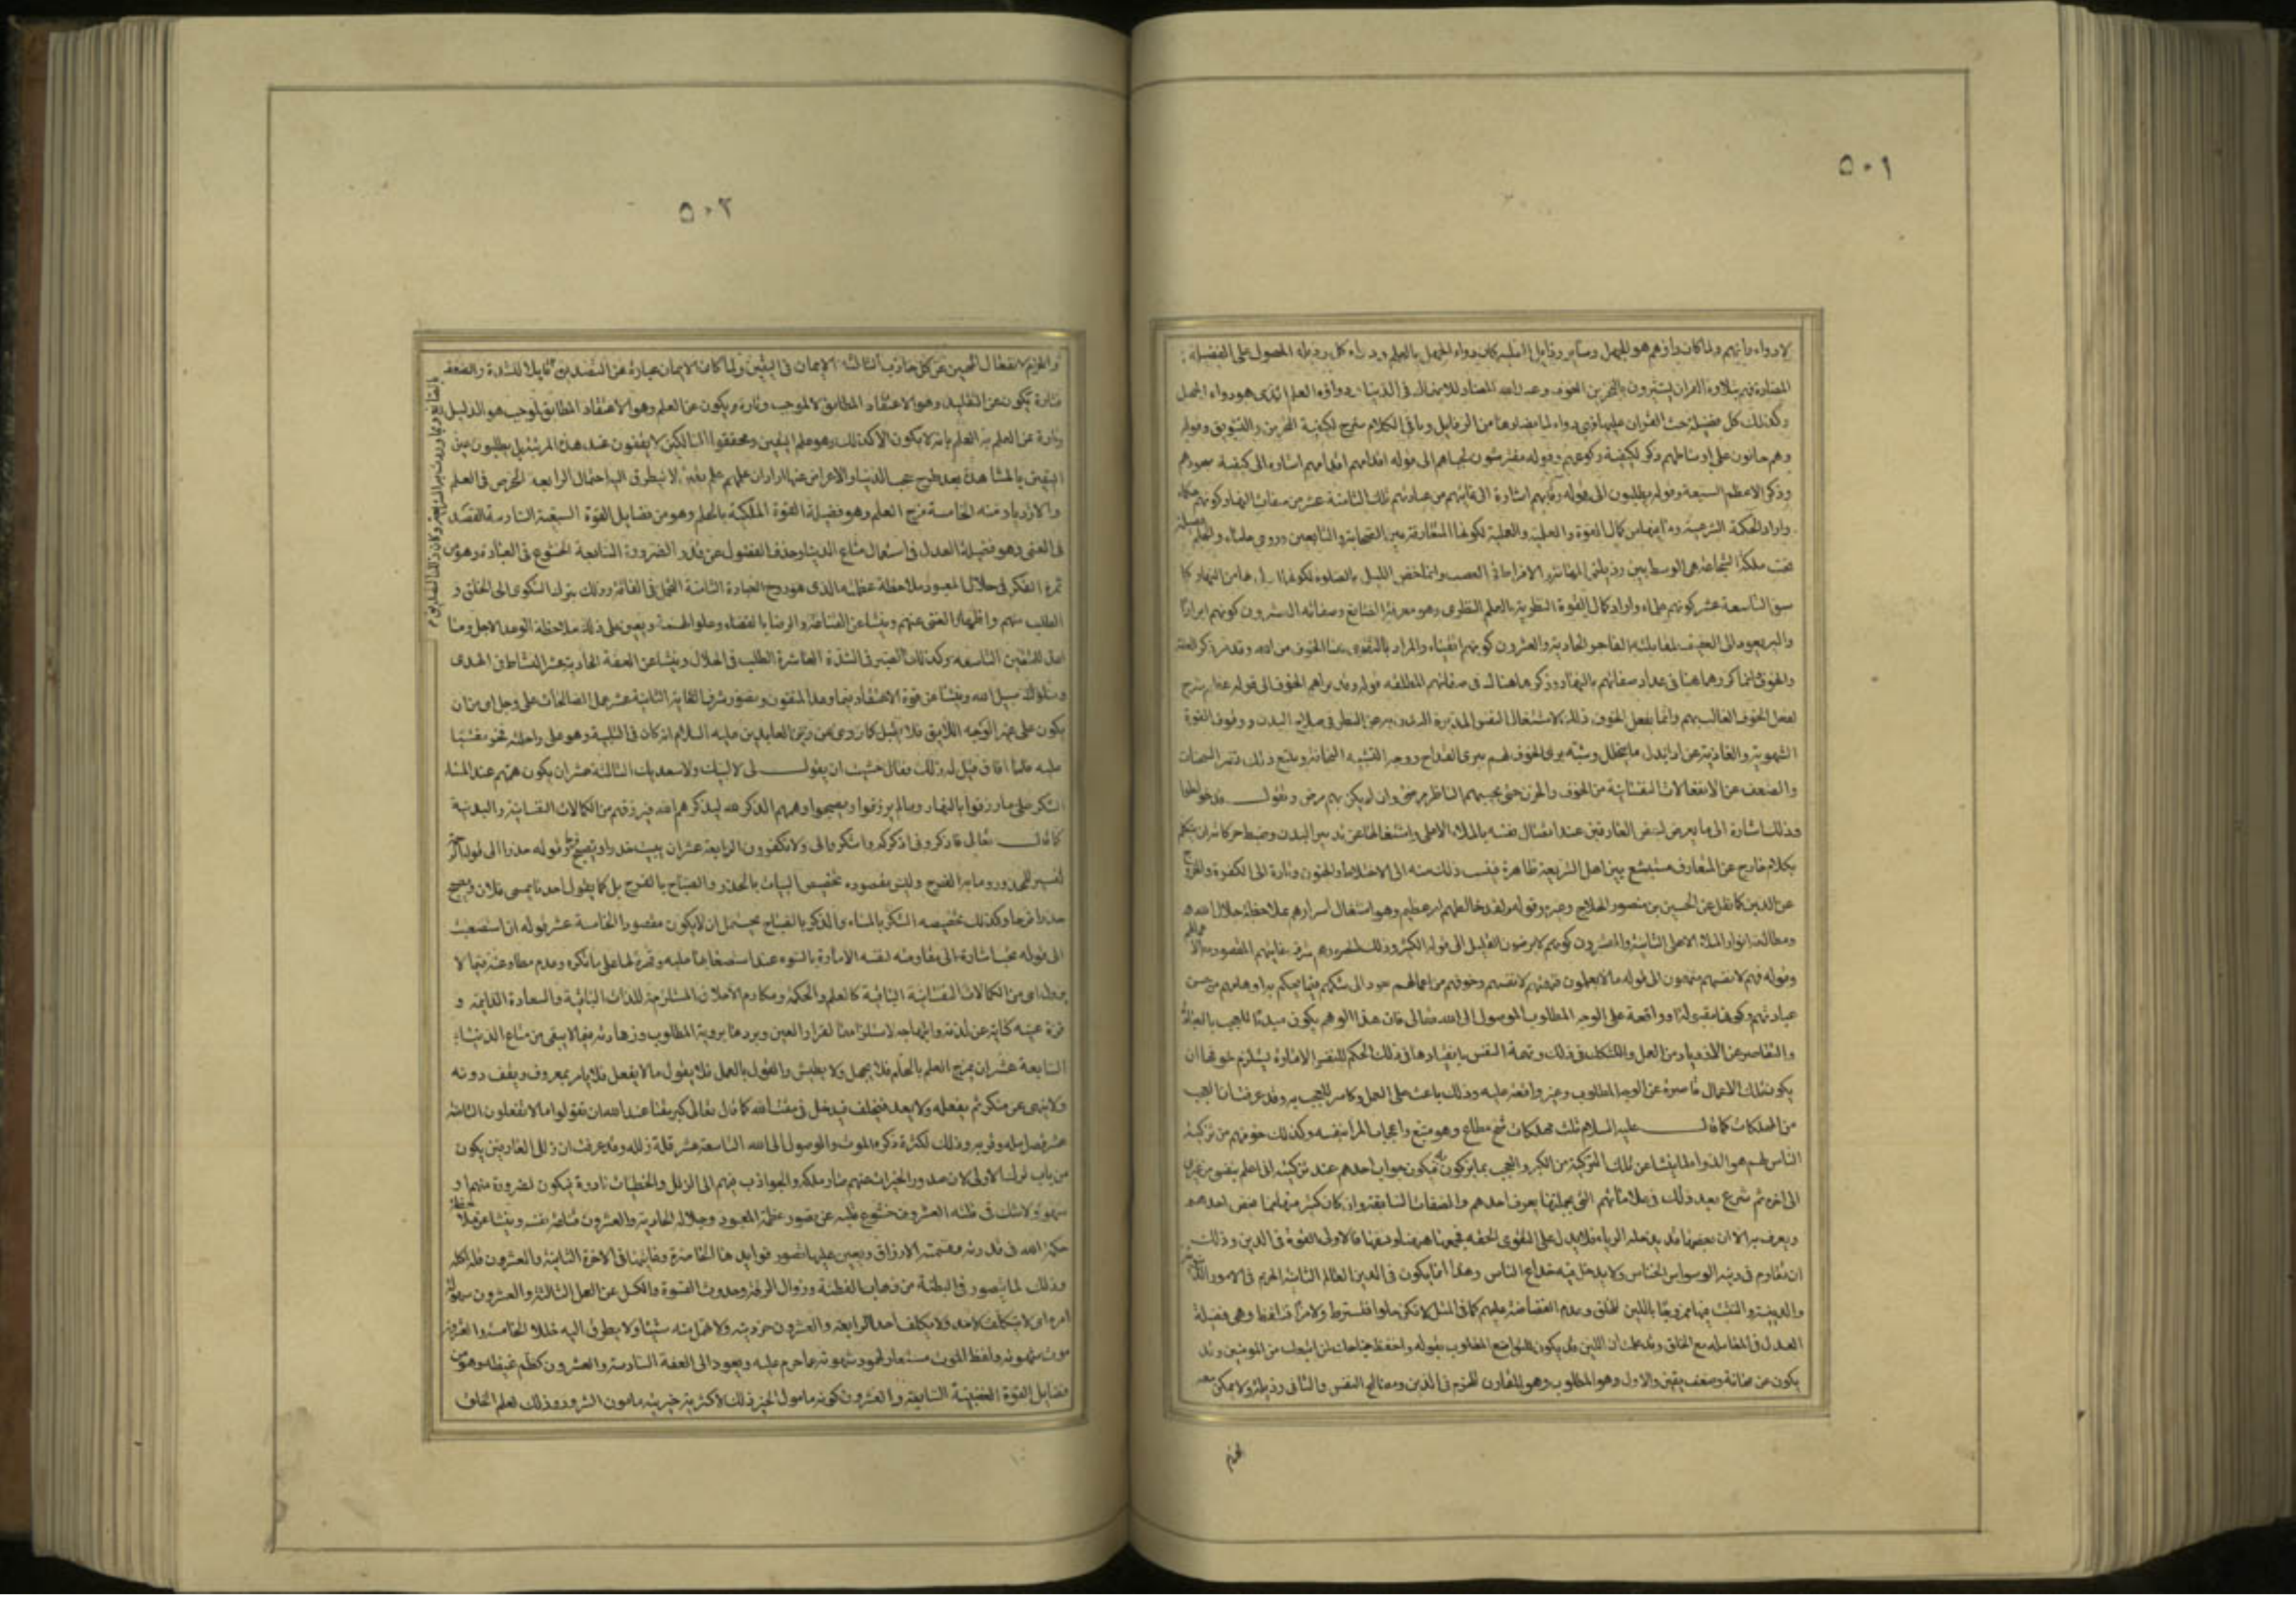 ٥٠١
لادواء دائهم ولما كان داؤهم هو الجهل وسائر رذايل العلية كان دواء الجهل بالعلم ودواء كل رذيلة الحصول على الفضيلة
المضادة فهم بتلاوة القران يستثيرون بالتحزين الخوف وعد الله المضاد للانهماك فى الدنيا ودواؤه العلم الذى هو دواء الجهل
وكذلك كل فضيلة حث القران عليها فهى دواء لما يضادها من الرذايل وباقى الكلام شرح لكيفية التحزين والتشويق وقوله
وهم حانون على اوساطهم ذكر لكيفية ركوعهم وقوله مفترشون لجباههم الى قوله اقدامهم اشارة الى كيفية سجودهم
وذكر الاعظم السبعة وقوله يطلبون الى قوله رقابهم اشارة الى غايتهم من عبادتهم تلك الثامنة عشر من صفات النهار كونهم حكماء
واراد الحكمة الشرعية وما فيها من كمال القوة العلمية والعملية لكونها المتعارفة بين الصحابة والتابعين وروى حلماء والحلم فضيلة
تحت ملكة الشجاعة هى الوسط بين رذيلتى المهانة والافراط فى الغضب وانما خص الليل بالصلوة لكونها اولى بها من النهار كما
سبق التاسعة عشر كونهم علماء واراد كمال القوة النظرية بالعلم النظرى وهو معرفة الصانع وصفاته العشرون كونهم ابرارا
والبر يعود الى العفيف لمقابلته الفاجر الحادية والعشرون كونهم اتقياء والمراد بالتقوى هنا الخوف من الله وقد مر ذكر العفة
والخوف انما كررهما هنا فى عداد صفاتهم بالنهار وذكرهما هناك فى صفاتهم المطلقة قوله وقد براهم الخوف الى قوله عظيم شرح
لفعل الخوف الغالب بهم وانما يفعل الخوف ذلك لاشتغال النفس المدبرة للبدن به عن النظر فى صلاح البدن ووقوف القوة
الشهوية والغاذية عن اداء بدل ما يتحلل وشبه برى الخوف لهم ببرى القداح ووجه التشبيه النحافة ويتبع ذلك تغير السحنات
والضعف عن الانفعالات النفسانية من الخوف والحزن حتى يحسبهم الناظر مرضى وان لم يكن بهم مرض ويقول قد خولطوا
وذلك اشارة الى ما يعرض لبعض العارفين عند اتصال نفسه بالملأ الاعلى واشتغالها عن تدبير البدن وضبط حركاته ان يتكلم
بكلام خارج عن المتعارف مستبشع بين اهل الشريعة ظاهرة فينسب ذلك منه الى الاختلاط والجنون وتارة الى الكفر والخروج
عن الدين كما نقل عن الحسين بن منصور الحلاج وغيره وقوله ولقد خالطهم امر عظيم وهو اشتغال اسرارهم بملاحظة جلال الله
ومطالعة انوار الملأ الاعلى الثانية والعشرون كونهم لا يرضون القليل الى قوله الكثير وذلك لتصورهم شرف غايتهم المقصودة
وقوله فهم لانفسهم متهمون الى قوله ما لا يعلمون فتهمتهم لانفسهم وخوفهم من اعمالهم يعود الى شكهم فيما يحكم به اوهامهم من حسن
عبادتهم وكونها مقبولة او واقعة على الوجه المطلوب الموصول الى الله تعالى فان هذا الوهم يكون مبدئا للعجب بالعبادة
والتقاصر عن الازدياد من العمل والتشكك فى ذلك وتهمة النفس بانقيادها فى ذلك الحكم للنفس الامارة يستلزم خوفها ان
يكون تلك الاعمال قاصرة عن الوجه المطلوب وغير واقعة عليه وذلك باعث على العمل وكاسر للعجب به وقد عرفت ان العجب
من المهلكات كما قال عليه السلام ثلث مهلكات شح مطاع وهوى متبع واعجاب المرء بنفسه وكذلك خوفهم من تزكية
الناس لهم هو الدواء لما ينشا عن تلك التزكية من الكبر والعجب بما يزكون به فيكون جواب احدهم عند تزكيته انى اعلم بنفسى من غيرى
الى اخره ثم شرع بعد ذلك فى علاماتهم التى بجملتها يعرف احدهم والصفات السابقة وان كان كثير منها مما يخص احدهم
ويعرف به الا ان بعضها قد يدخله الرياء فلا يدل على التقوى الحقة فجمعها هيهنا ونسقها فالاولى القوة فى الدين وذلك
ان تقاوم فى دينه الوسواس الخناس ولا يدخل فيه خداع الناس وهذا انما يكون فى الدين العالم الثانية الحزم فى الامور الدنيوية
والدينية والتثبت فيها ممزوجا باللين للخلق وعدم الفضاضة عليهم كما فى المثل لا تكن حلوا فتسترط ولا مرا فتلفظ وهى فضيلة
العدل فى المعاملة مع الخلق وقد علمت ان اللين قد يكون للتواضع المطلوب بقوله واخفض جناحك لمن اتبعك من المؤمنين وقد
يكون عن مهانة وضعف يقين والاول هو المطلوب وهو المقارن للحزم فى الدين ومصالح النفس والثانى رذيلة ولا يمكن معه
الحزم
٥٠٢
والحزم لانفعال المهين عن كل جاذب الثالثة الايمان فى اليقين ولما كان الايمان عبارة عن التصديق قابلا للشدة والضعف
فتارة يكون عن التقليد وهو الاعتقاد المطابق لا لموجب وتارة يكون عن العلم وهو الاعتقاد المطابق لموجب هو الدليل
وتارة عن العلم به العلم بانه لا يكون الا كذلك وهو علم اليقين ومحققوا السالكين لا يقفون عند هذه المرتبة بل يطلبون عين
اليقين بالمشاهدة بعد طرح حجب الدنيا والاعراض عنها اراد ان علمهم علم يقين لا يتطرق اليه احتمال الرابعة الحرص فى العلم
والازدياد منه الخامسة مزج العلم وهو فضيلة القوة الملكية بالحلم وهو من فضايل القوة السبعية السادسة القصد
فى الغنى وهو فضيلة العدل فى استعمال متاع الدنيا وحذف الفضول عن قدر الضرورة السابعة الخشوع فى العبادة وهو من
ثمرة الفكر فى جلال المعبود وملاحظة عظمته الذى هو روح العبادة الثامنة التجمل فى الفاقة وذلك بترك الشكوى الى الخلق و
الطلب منهم واظهار الغنى عنهم وينشا عن القناعة والرضا بالقضاء وعلو الهمة ويعين على ذلك ملاحظة الوعد الاجل وما
اعد للمتقين التاسعة وكذلك الصبر فى الشدة العاشرة الطلب فى الحلال وينشا عن العفة الحادية عشر النشاط فى الهدى
وسلوك سبيل الله وينشا عن قوة الاعتقاد فيما وعد المتقون وتصور شرف الغاية الثانية عشر عمل الصالحات على وجل اى من ان
يكون على غير الوجه اللايق فلا يقبل كما روى عن زين العابدين عليه السلام انه كان فى التلبية وهو على راحلته فخر مغشيا
عليه فلما افاق قيل له ذلك فقال خشيت ان يقول لى لا لبيك ولا سعديك الثالثة عشر ان يكون همهم عند المساء
الشكر على ما رزقوا بالنهار وما لم يرزقوا ويصبحوا وهمهم الذكر لله ليذكرهم الله فيرزقهم من الكمالات النفسانية والبدنية
كما قال تعالى فاذكرونى اذكركم واشكروا لى ولا تكفرون الرابعة عشر ان يبيت حذرا ويصبح فرحا وقوله حذرا الى قوله
تفسير للمحذور وما به الفرح وليس مقصوده تخصيص البيات بالحذر والصباح بالفرح بل كما يقول احدنا يمسى فلان ويصبح
حذرا فرحا وكذلك تخصيصه الشكر بالمساء والذكر بالصباح يحتمل ان لا يكون مقصودا الخامسة عشر قوله ان استصعبت
الى قوله تحب اشارة الى مقاومته لنفسه الامارة بالسوء عند استصعابها عليه وقهره لها على ما تكره وعدم مطاوعته فيما لا
يزول اى من الكمالات النفسانية الباقية كالعلم والحكمة ومكارم الاخلاق المستلزمة للذات الباقية والسعادة الدايمة و
قرة عينه كناية عن لذته وابتهاجه لاستلزامها لقرار العين وبردها برؤية المطلوب وزهادته فيما لا يبقى من متاع الدنيا
السابعة عشر ان يمزج العلم بالحلم فلا يجهل ولا يطيش والقول بالعمل فلا يقول ما لا يفعل فلا يامر بمعروف ويقف دونه
ولا ينهى عن منكر ثم يفعله ولا يعد فيخلف فيدخل فى مقت الله كما قال تعالى كبر مقتا عند الله ان تقولوا ما لا تفعلون الثامنة
عشر قصر امله وقربه وذلك لكثرة ذكره الموت والوصول الى الله التاسعة عشر قلة زلله وقد عرفت ان زلل العارفين يكون
من باب ترك الاولى لان صدور الخيرات عنهم صار ملكة والجواذب فيهم الى الزلل والخطيات نادرة فيكون لضرورة منهم او
سهو ولا شك فى قلته العشرون خشوع قلبه عن تصور عظمة المعبود وجلاله الحادية والعشرون قناعة نفسه وينشا عن ملاحظة
حكمة الله فى قدرته وقسمته الارزاق ويعين عليها تصور فوايدها الحاضرة وغايتها فى الاخرة الثانية والعشرون قلة اكله
وذلك لما يتصور فى البطنة من ذهاب الفطنة وزوال الرقة وحدوث القسوة والكسل عن العمل الثالثة والعشرون سهولة
امره اى لا يتكلف لاحد ولا يكلف احدا الرابعة والعشرون حرز دينه ولا يهمل منه شيئا ولا يطرق اليه خللا الخامسة والعشرون
موت شهوته ولفظ الموت مستعار لخمود شهوته عما حرم عليه ويعود الى العفة السادسة والعشرون كظم غيظه وهو من
فضايل القوة الغضبية السابعة والعشرون كونه مامول الخير ذلك لاكثرية خيريته مامون الشرور وذلك لعلم الخلق